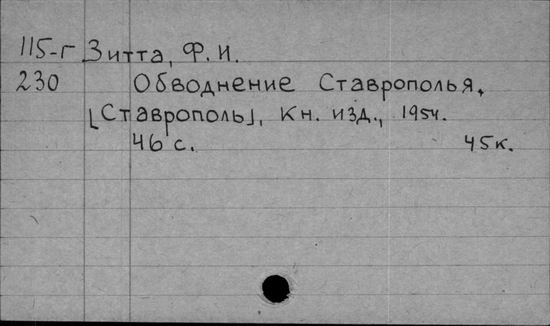 115-г Зитта, Ф. И.
230 Обводнение Ставрополья.
[Ставрополь], Кн. изд., 1954.
46 с. 45к.